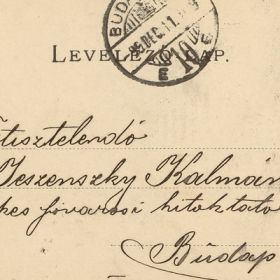 BUDA
95 DEC. 11.
E E
LEVELEZŐ LAP.
Tisztelendő
Jeszenszky Kálmán
kes fővárosi hitoktató
Budap